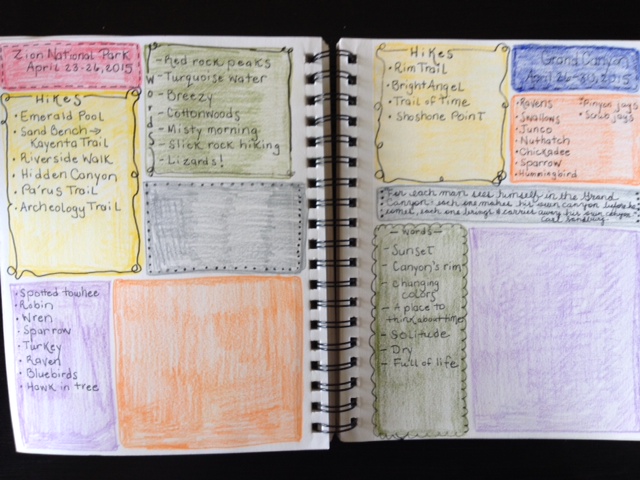 Zion National Park
April 23-26, 2015
Hikes
• Emerald Pool
• Sand Bench →
Kayenta Trail
• Riverside Walk
• Hidden Canyon
• Pa'rus Trail
• Archeology Trail
Words
- Red rock peaks
- Turquoise water
- Breezy
- Cottonwoods
- Misty morning
- Slick rock hiking
- Lizards!
• Spotted towhee
• Robin
• Wren
• Sparrow
• Turkey
• Raven
• Bluebirds
• Hawk in tree
Hikes
• Rim Trail
• Bright Angel
• Trail of Time
• Shoshone Point
Grand Canyon
April 26-30, 2015
• Ravens
• Swallows
• Junco
• Nuthatch
• Chickadee
• Sparrow
• Hummingbird
• Pinyon jays
• Scrub jays
"For each man sees himself in the Grand
Canyon: each one makes his own canyon before he
comes, each one brings & carries away his own canyon"
Carl Sandburg
- Words -
- Sunset
- Canyon's rim
- changing
colors
- A place to
think about time
- Solitude
- Dry
- Full of life